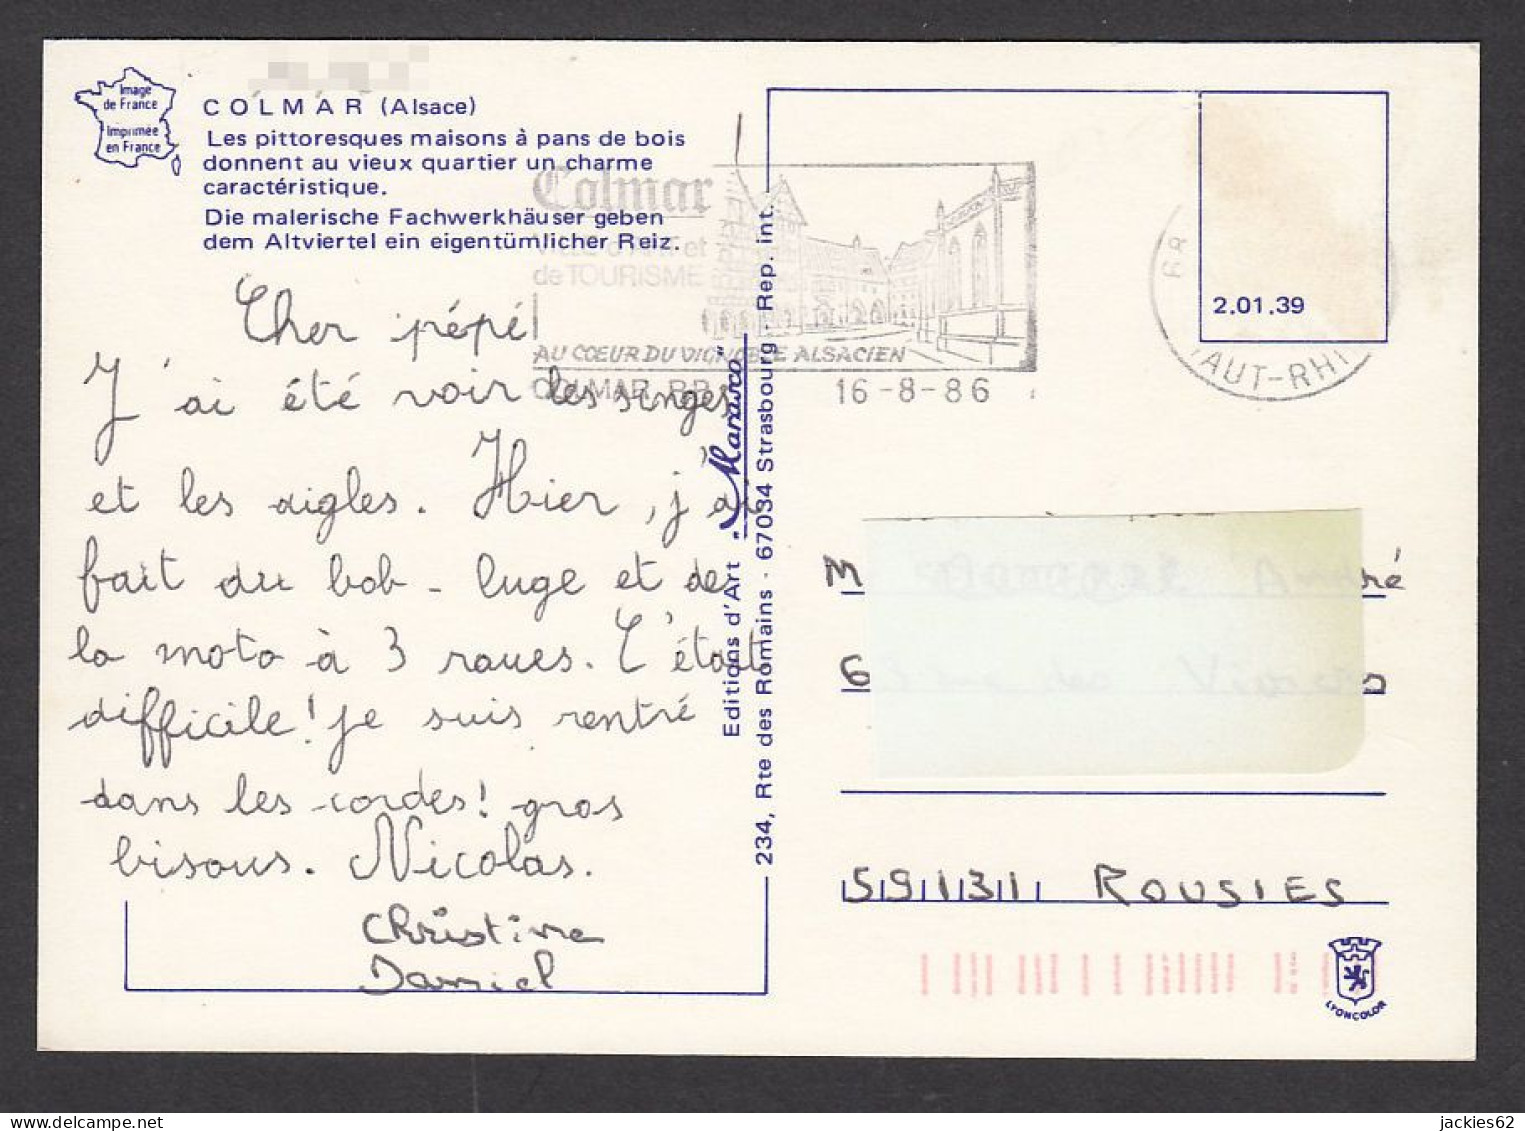 Image
de France
Imprimée
en France
COLMAR (Alsace)
Les pittoresques maisons à pans de bois
donnent au vieux quartier un charme
caractéristique.
Die malerische Fachwerkhäuser geben
dem Altviertel ein eigentümlicher Reiz.
Colmar
VILLE d'ART et
de TOURISME
AU COEUR DU VIGNOBLE ALSACIEN
COLMAR R.P.
16-8-86
AUT-RHI
2.01.39
Cher pépé
J'ai été voir les singes
et les aigles. Hier, j'ai
fait du bob-luge et de
la moto à 3 roues. C'était
difficile! je suis rentré
dans les cordes! gros
bisous. Nicolas.
Christine
Daniel
Editions d'Art "Marasco"
234, Rte des Romains · 67034 Strasbourg · Rep. int.
M
6
59131 ROUSIES
LYONCOLOR
jackies62